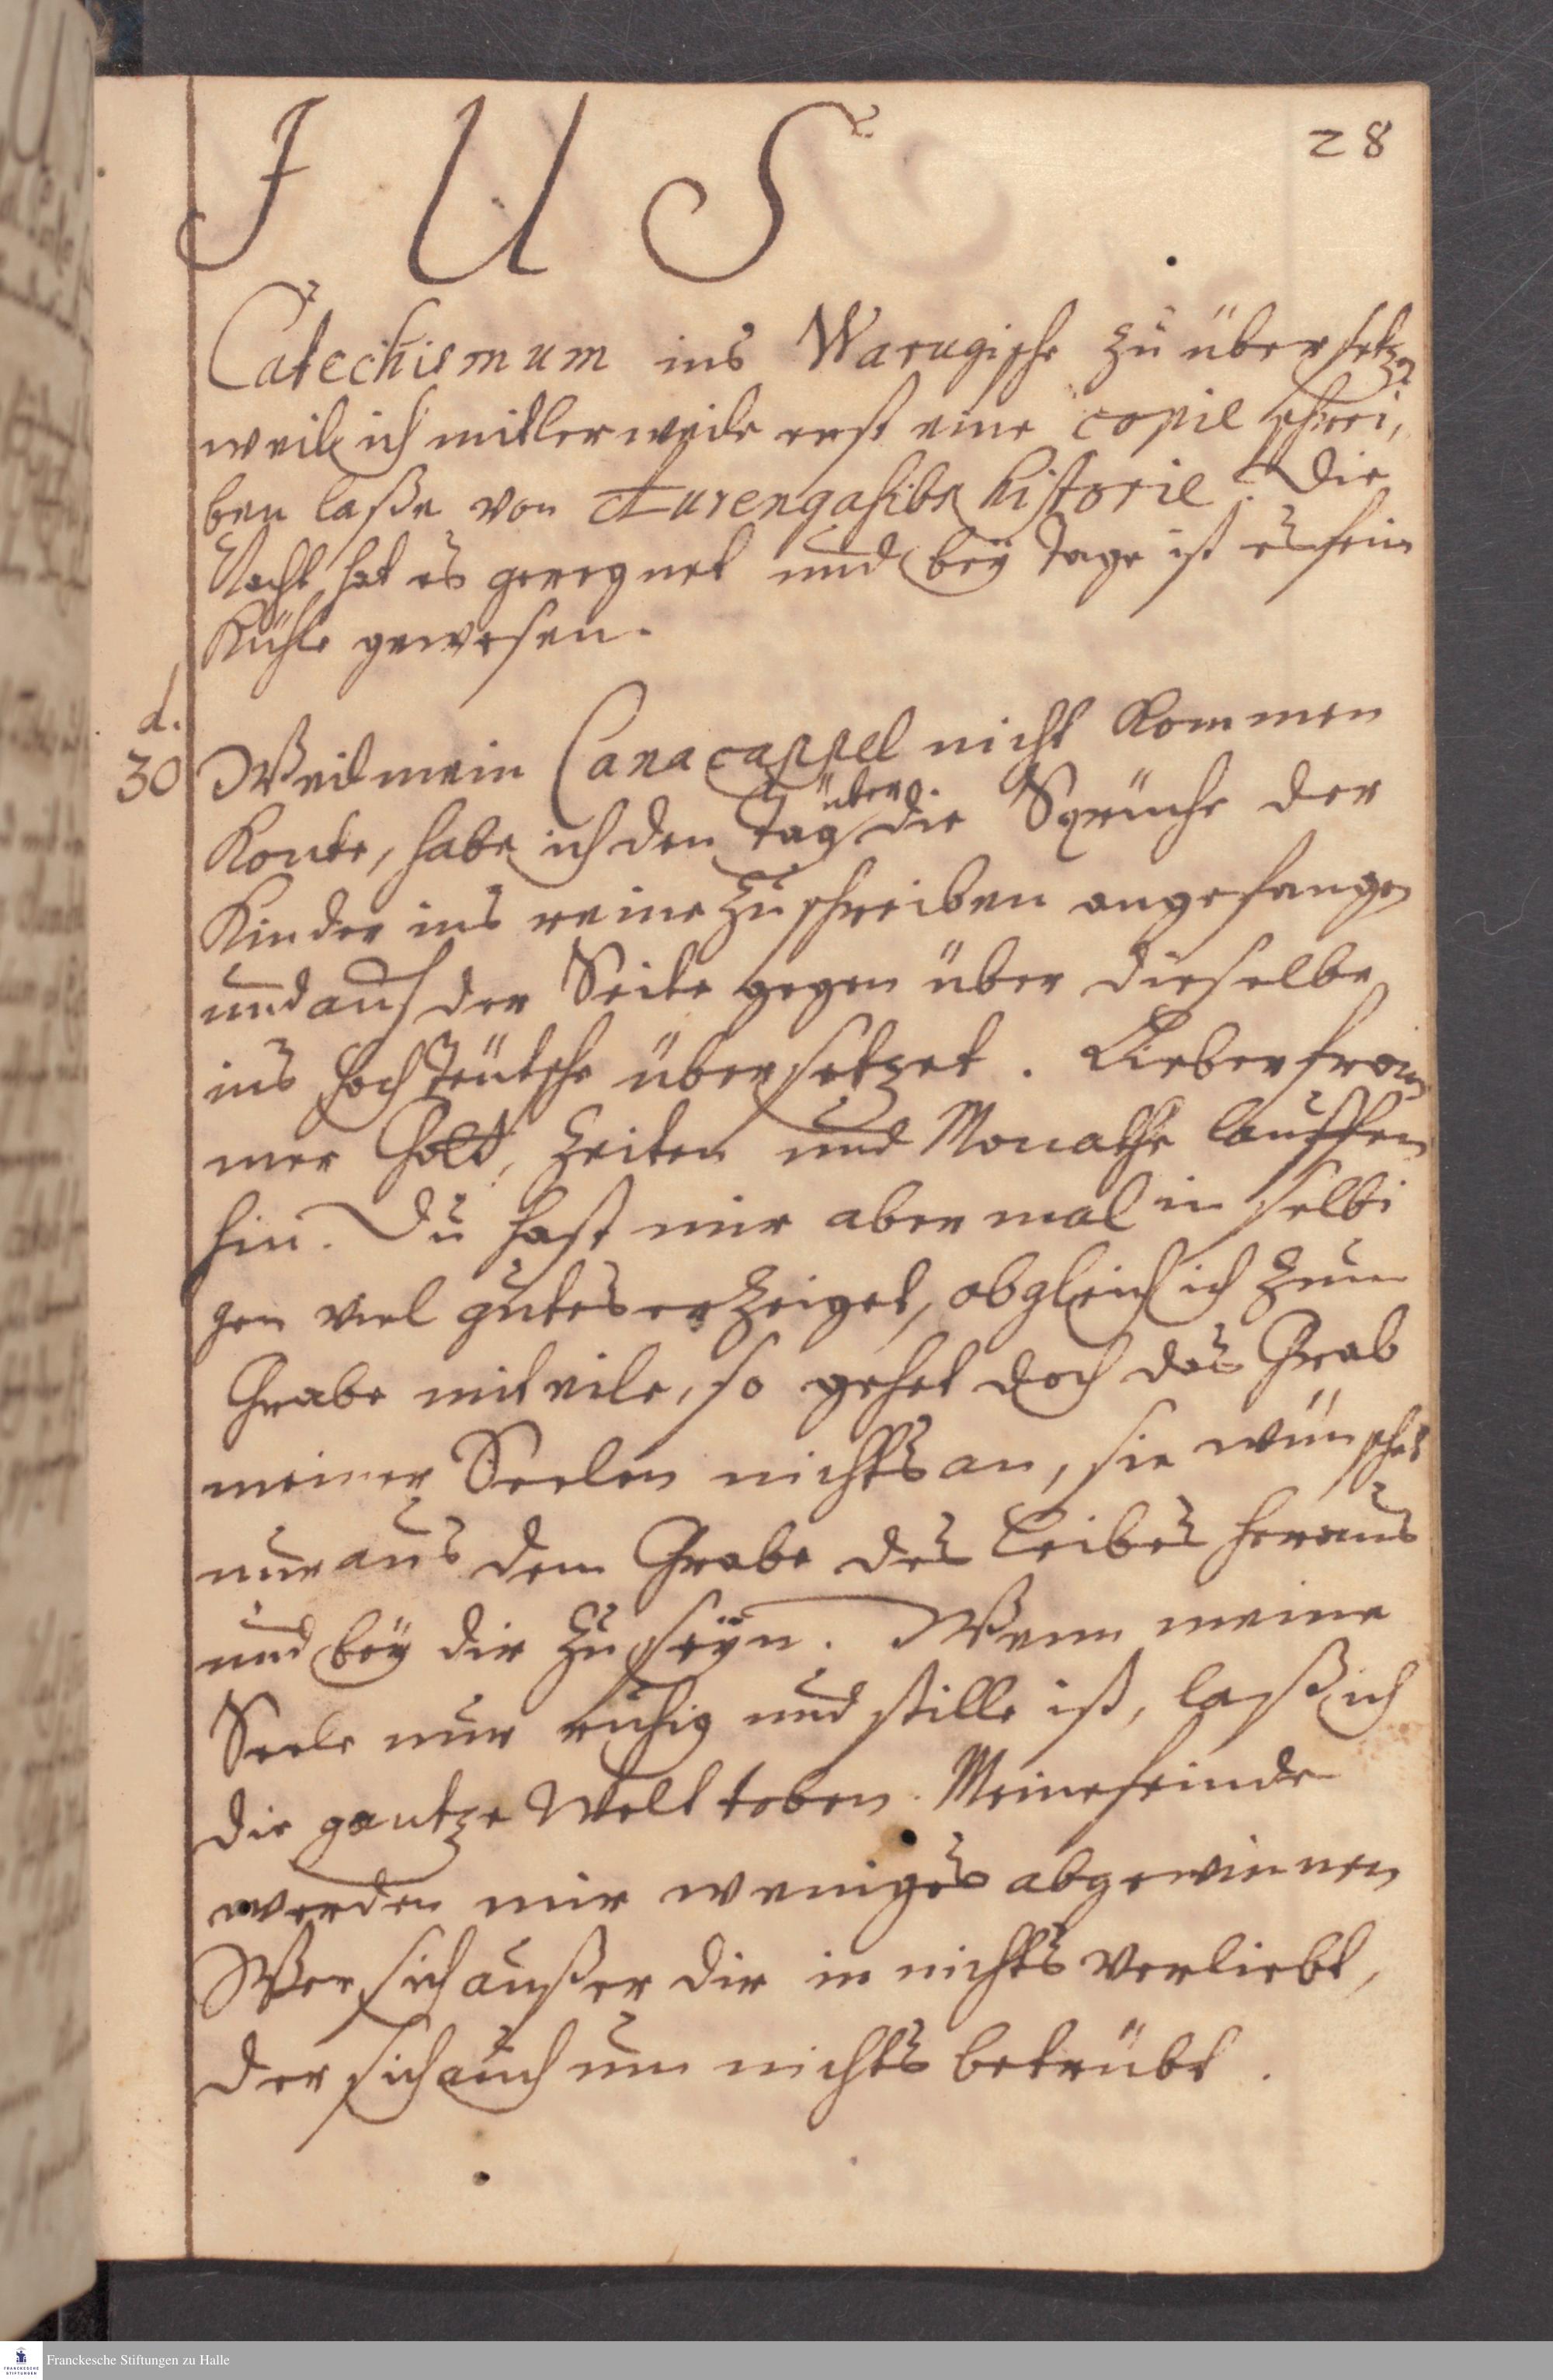 J U S
28
Catechismum ins Warugische zu übersetzen
weil ich mitlerweile erst eine copie schrei,
ben laße von Aurengasibs historie. Die
Nacht hat es geregnet und bey Tage ist es fein
Kühle gewesen.
d.
30
Weil mein Canacappel nicht kommen
konte, habe ich den Tag über die Sprüche der
Kinder ins reine zu schreiben angefangen
und auf der Seite gegen über dieselbe
ins hochteütsche übersetzet. Lieber from
mer Gott, Zeiten und Monathe lauffen
hin. Du hast mir abermal in selbi
gen viel gutes erzeiget, obgleich ich zum
Grabe mit eile, so gehet doch das Grab
meiner Seelen nichts an, sie wünschet
nur aus dem Grabe des Leibes heraus
und bey dir zu seÿn. Wenn meine
Seele nur ruhig und stille ist, laß ich
die gantze Welt toben. Meine feinde
werden mir weniges abgewinnen
Wer sich außer dir in nichts verliebt,
der sich auch um nichts betrübt.
Franckesche Stiftungen zu Halle
FRANCKESCHE
STIFTUNGEN